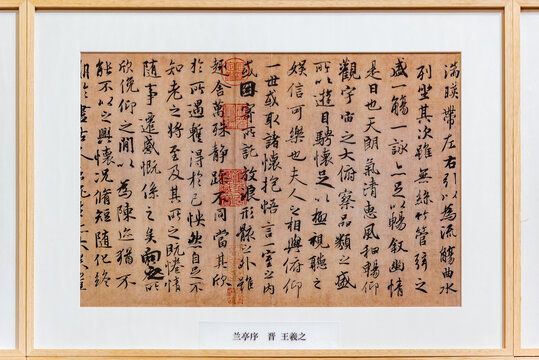 湍暎帶左右引以為流觴曲水
列坐其次雖無絲竹管弦之
盛一觴一詠亦足以暢叙幽情
是日也天朗氣清惠風和暢仰
觀宇宙之大俯察品類之盛
所以遊目騁懷足以極視聽之
娛信可樂也夫人之相與俯仰
一世或取諸懷抱悟言一室之內
或因寄所託放浪形骸之外雖
趣舍萬殊靜躁不同當其欣
於所遇暫得於己怏然自足不
知老之將至及其所之既惓情
隨事遷感慨係之矣向之所
欣俛仰之閒以為陳迹猶不
能不以之興懷況脩短隨化終
兰亭序 晋 王羲之